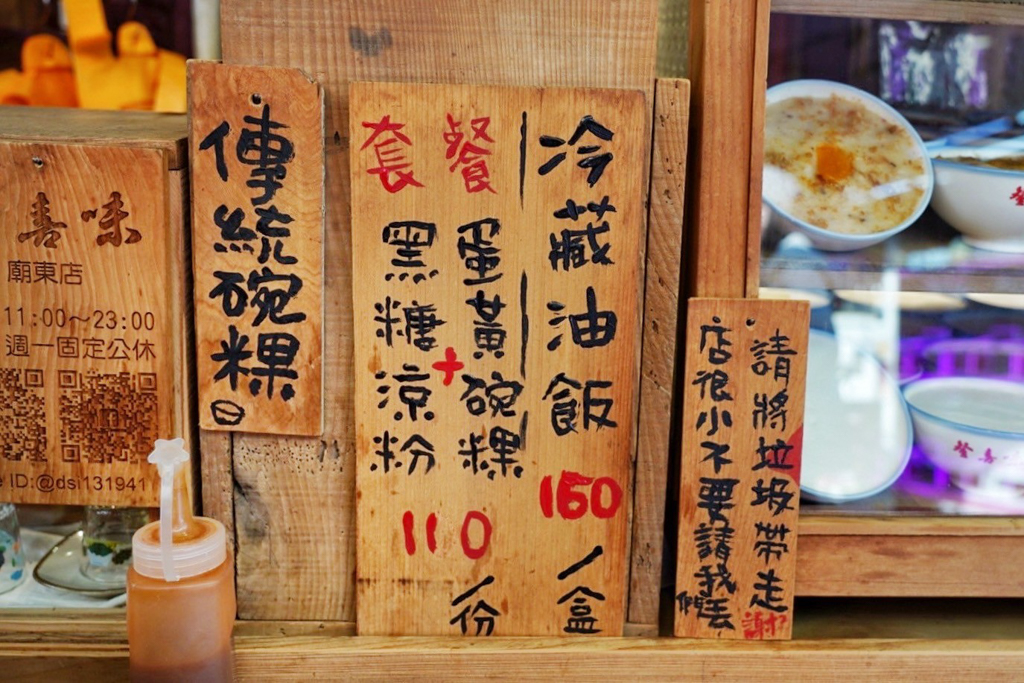 喜味
廟東店
11:00~23:00
週一固定公休
ID:@dsi131941
傳統碗粿
冷藏油飯
160/盒
套餐
蛋黃碗粿
+
黑糖涼粉
110/份
請將垃圾帶走
店很小不要請我丟